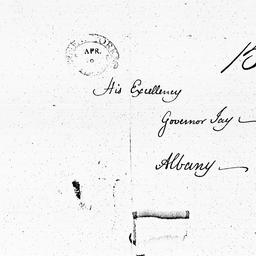 APR.
His Excellency
Governor Jay
Albany